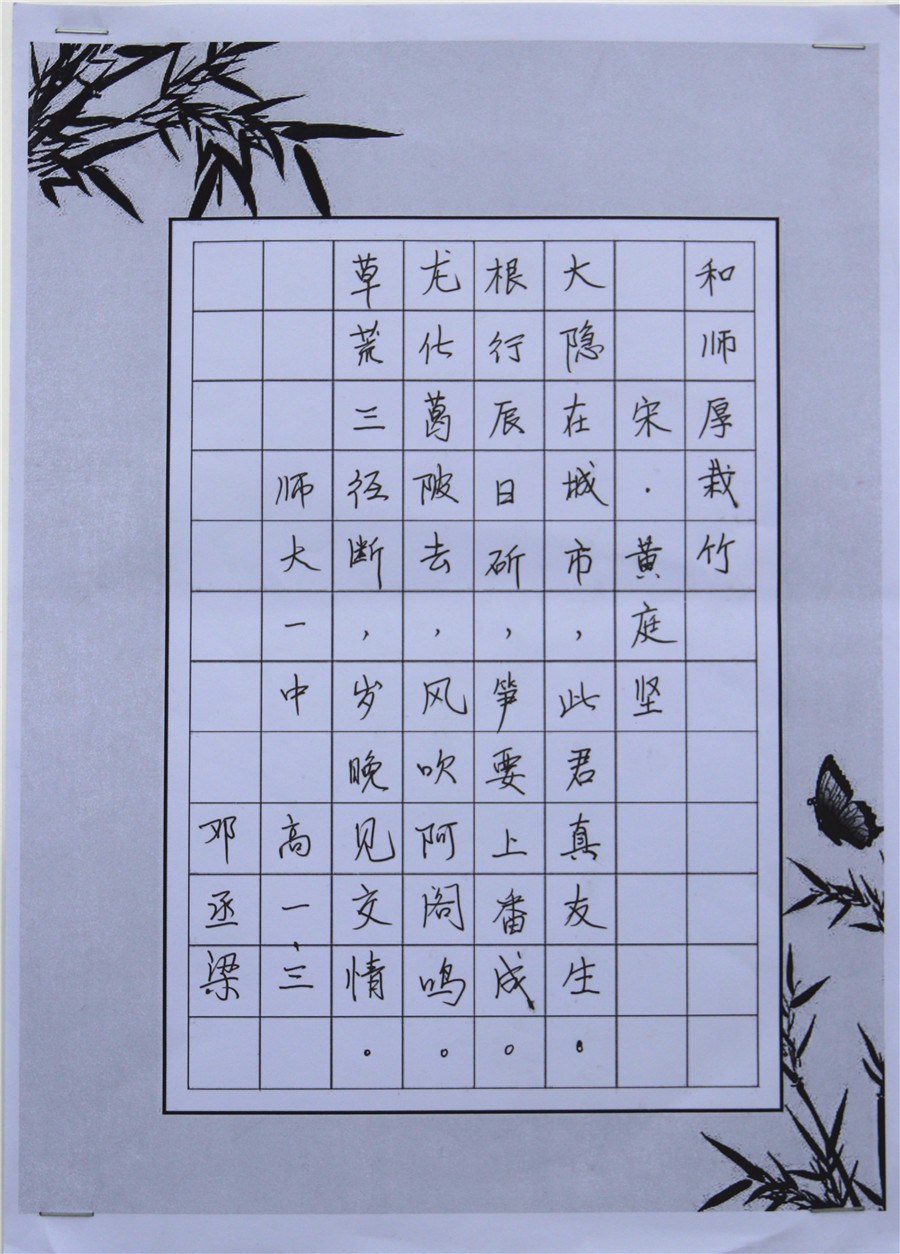 和师厚栽竹
宋·黄庭坚
大隐在城市，此君真友生。
根行辰日斫，笋要上番成。
龙化葛陂去，风吹阿阁鸣。
草荒三径断，岁晚见交情。
师大一中 高一、三
邓丞梁